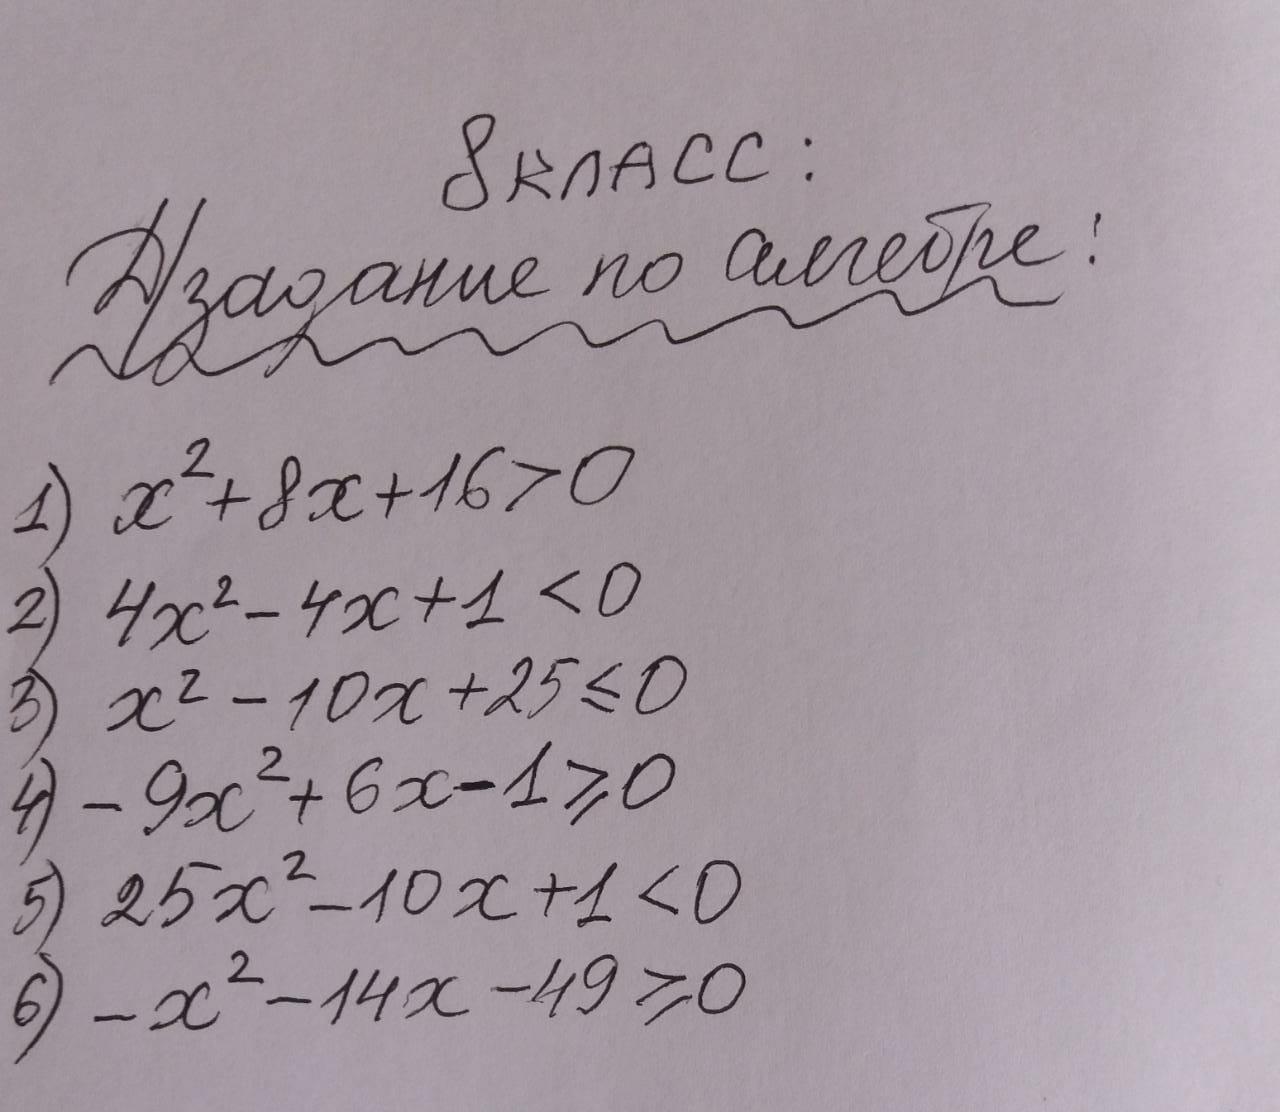 8 КЛАСС:
Д/задание по алгебре!
1) x²+8x+16>0
2) 4x²-4x+1<0
3) x²-10x+25≤0
4) -9x²+6x-1≥0
5) 25x²-10x+1<0
6) -x²-14x-49≥0